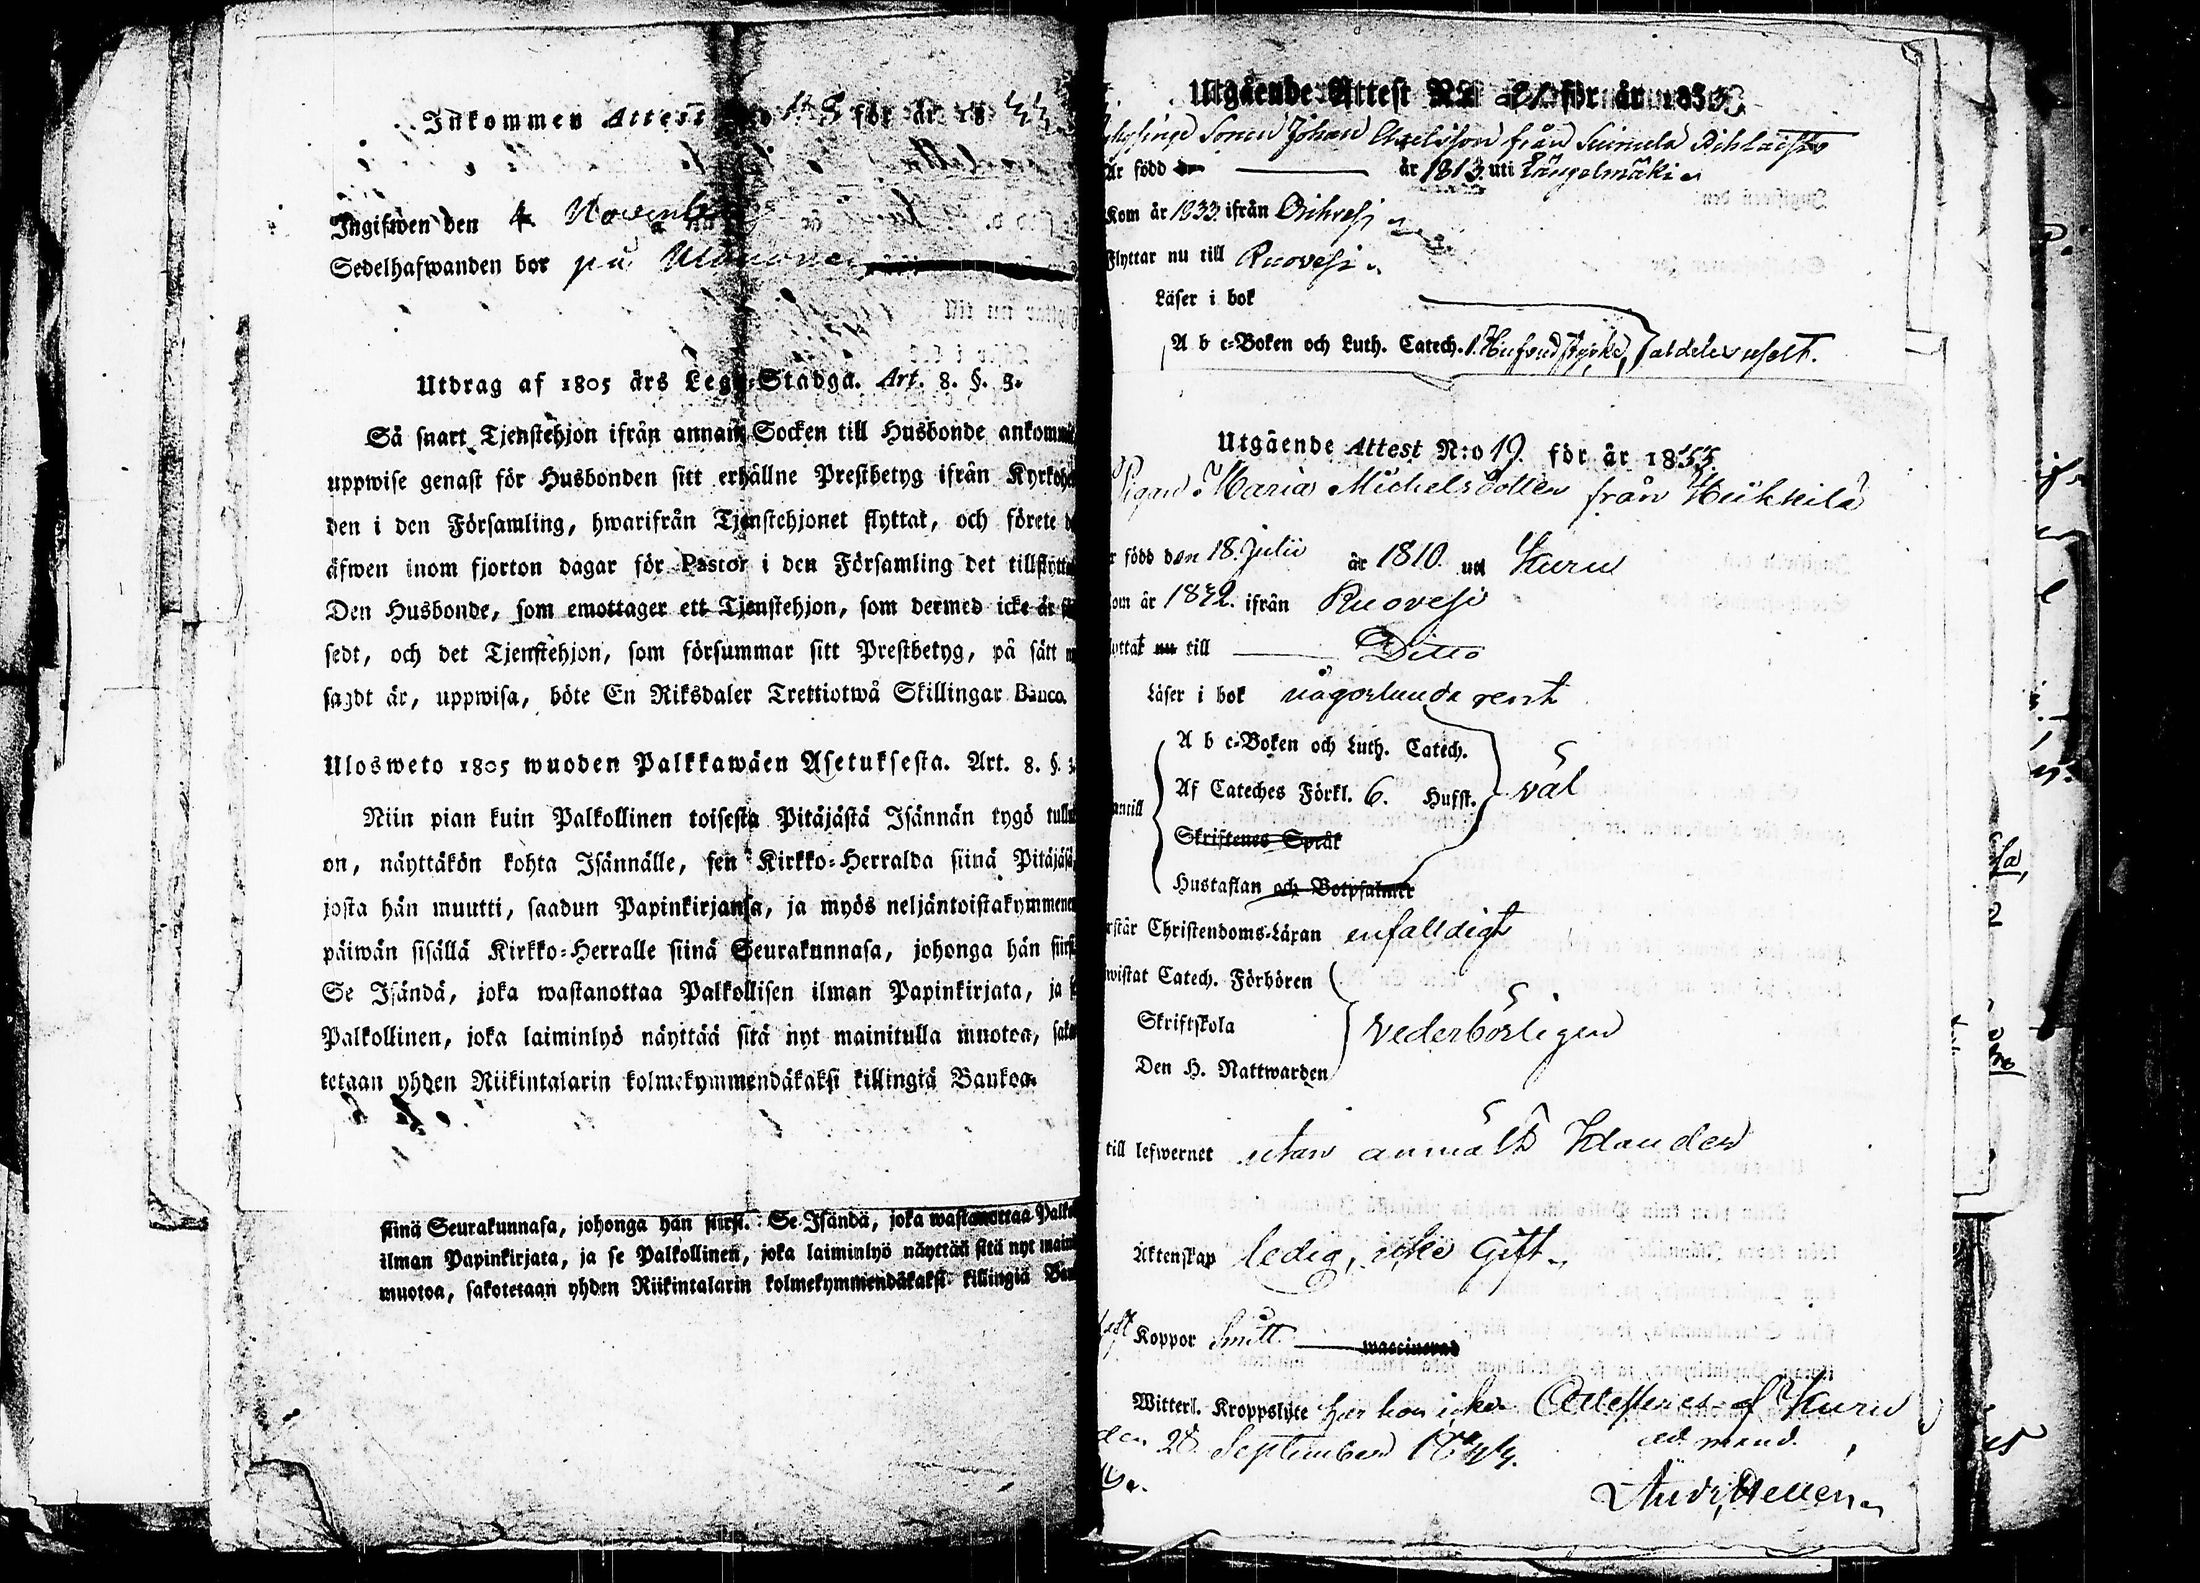 Inkommen Attest N:o 18 för år 1833
Ingifwen den 4 Novemb
Sedelhafwanden bor på
Utdrag af 1805 års Lego-Stadga. Art. 8. §. 3.
Så snart Tjenstehjon ifrån annan Socken till Husbonde ankomm
uppwise genast för Husbonden sitt erhållne Prestbetyg ifrån Kyrkohe
den i den Församling, hwarifrån Tjenstehjonet flyttat, och förete d
äfwen inom fjorton dagar för Pastor i den Församling det tillflytta
Den Husbonde, som emottager ett Tjenstehjon, som dermed icke är f
sedt, och det Tjenstehjon, som försummar sitt Prestbetyg, på sätt n
sagdt är, uppwisa, böte En Riksdaler Trettiotwå Skillingar Banco.
Ulosweto 1805 wuoden Palkkawäen Asetuksesta. Art. 8. §. 3.
Niin pian kuin Palkollinen toisesta Pitäjästä Isännän tygö tullu
on, näyttäkön kohta Isännälle, sen Kirkko-Herralda siinä Pitäjäsä,
josta hän muutti, saadun Papinkirjansa, ja myös neljäntoistakymmenen
päiwän sisällä Kirkko-Herralle siinä Seurakunnasa, johonga hän siirs
Se Isändä, joka wastanottaa Palkollisen ilman Papinkirjata, ja s
Palkollinen, joka laiminlyö näyttää sitä nyt mainitulla muotoa, sako
tetaan yhden Riikintalarin kolmekymmendäkaksi killingiä Bankoa.
siinä Seurakunnasa, johonga hän siirsi. Se Isändä, joka wastanottaa Palko
ilman Papinkirjata, ja se Palkollinen, joka laiminlyö näyttää sitä nyt maini
muotoa, sakotetaan yhden Riikintalarin kolmekymmendäkaksi killingiä Ban
Utgående Attest N:o 21 för år 1833
Sonen Johan Axelsson från
Är född den år 1813. uti Längelmäki
Kom år 1833. ifrån Orihvesi
Flyttar nu till Ruovesi
Läser i bok
A b c-Boken och Luth. Catech. 1. Hufvudstycke, aldeles uselt.
Utgående Attest N:o 19. för år 1833.
Pigan Maria Michelsdotter från Heikkilä
r född den 18. Julii år 1810. uti Kuru
om år 1832. ifrån Ruovesi
yttat nu till Ditto
Läser i bok någorlunda rent
A b c-Boken och Luth. Catech.
Af Cateches Förkl. 6. Hufst. väl
antill
Skriftenes Språk
Hustaflan och Botpsalmer
rstår Christendoms-Läran enfalldigt
wistat Catech. Förhören
Skriftskola vederbörligen
Den H. Nattwarden
till lefwernet utan anmält klander
Äktenskap ledig, icke gift
haft Koppor Smitt waccinerad
Witterl. Kroppslyte har hon icke Attesteras af Kuru
den 28 September 1833. ad mand.
Andr. Hellen